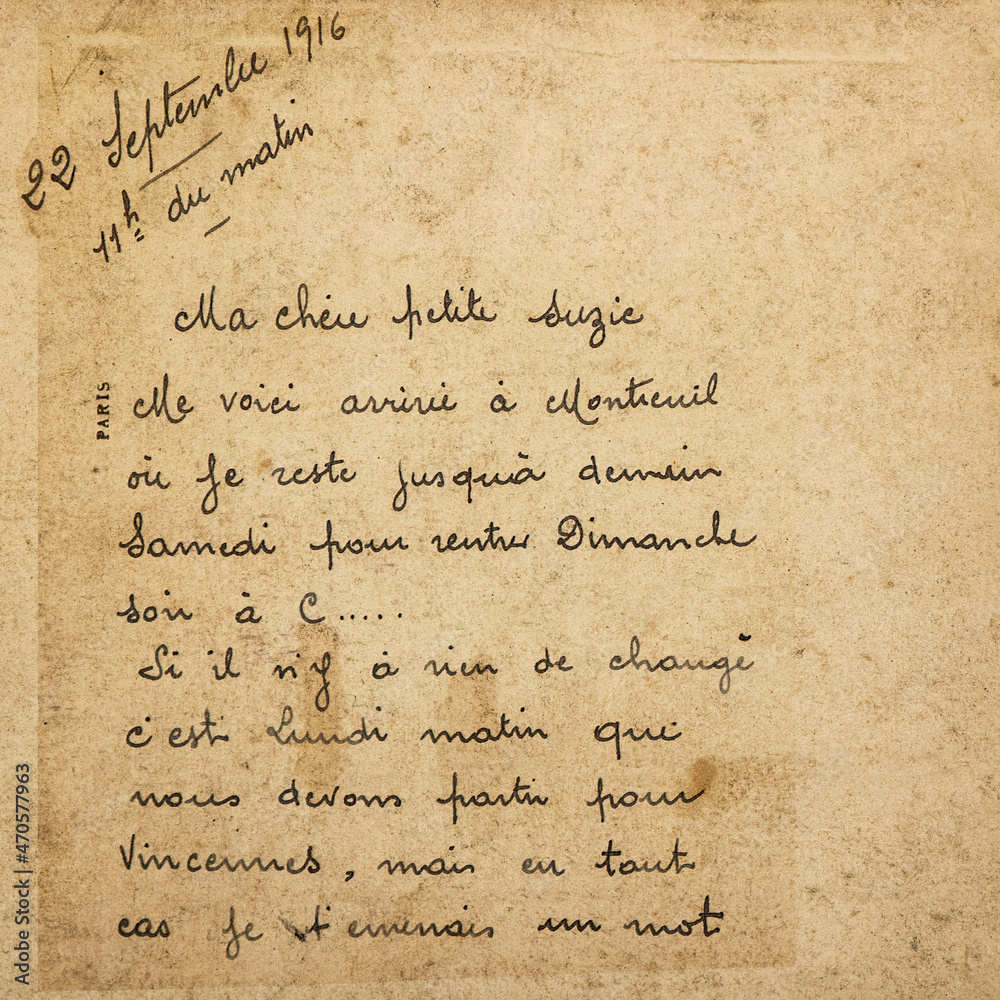 22 Septembre 1916
11h du matin
Ma chère petite Suzie
PARIS
Me voici arrivé à Montreuil
où je reste jusqu'à demain
Samedi pour rentrer Dimanche
soir à C.....
Si il n'y à rien de changé
c'est Lundi matin que
nous devons partir pour
Vincennes, mais en tout
cas je t'enverrais un mot
Adobe Stock | #470577963